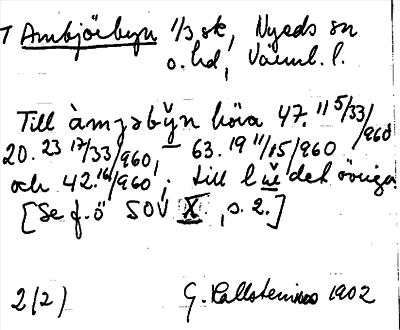 T Ambjörbyn 1/3 sk, Nyeds sn
o. hd, Värml. l.
Till àmȷəby̆n höra 47. 11 5/33/960
20. 23 17/33/960, 63. 19 11/15/960
och 42. 16/960; till l det övriga
[Se f. ö SOV X, s. 2.]
2(2) G. Kallstenius 1902